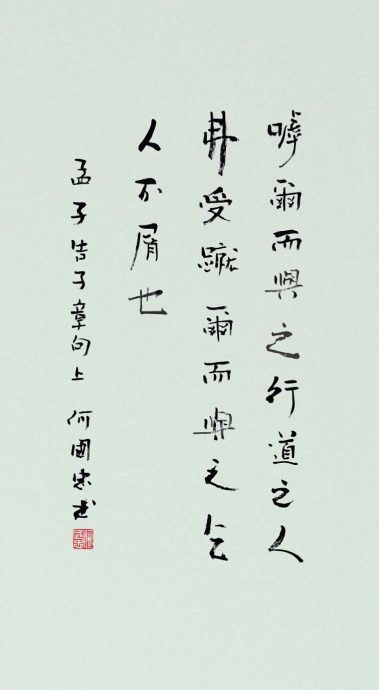 嘑爾而與之行道之人
弗受蹴爾而與之乞
人不屑也
孟子告子章句上 何國宋書